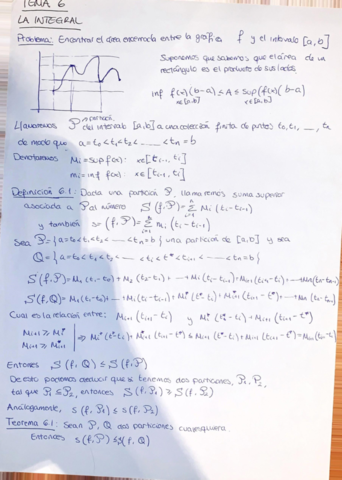 TEMA 6
LA INTEGRAL
Problema: Encontrar el área encerrada entre la gráfica f y el intervalo [a,b]
Suponemos que sabemos que el área de un
rectángulo es el producto de sus lados
inf f(x)(b-a) ≤ A ≤ sup f(x)(b-a)
x∈[a,b] x∈[a,b]
Llamaremos P partición del intervalo [a,b] a una colección finita de puntos t₀, t₁, ..., tₙ
de modo que a = t₀ < t₁ < t₂ < ... < tₙ = b
Denotamos Mi = sup f(x) : x∈[ti-1, ti]
mi = inf f(x) : x∈[ti-1, ti]
Definición 6.1: Dada una partición P, llamaremos suma superior
asociada a P al número S(f,P) = Σ Mi (ti - ti-1)
y también s = (f,P) = Σ mi (ti - ti-1)
Sea P = {a = t₀ < t₁ < t₂ < ... < tₙ = b} una partición de [a,b] y sea
Q = {a = t₀ < t₁ < t₂ < ... < ti < t* < ti+1 < ... < tₙ = b}
S(f,P) = M₁(t₁-t₀) + M₂(t₂-t₁) + ... + Mi(ti-ti-1) + Mi+1(ti+1-ti) + ... + Mn(tn-tn-1)
Cual es la relación entre: Mi+1 (ti+1 - ti) y
Entonces S(f,Q) ≤ S(f,P)
De esto podemos deducir que si tenemos dos particiones, P₁, P₂,
tal que P₁ ⊆ P₂, entonces S(f,P₁) ≥ S(f,P₂)
Análogamente, s(f,P₁) ≤ s(f,P₂)
Teorema 6.1: Sean P, Q dos particiones cualesquiera
Entonces s(f,P) ≤ S(f,Q)